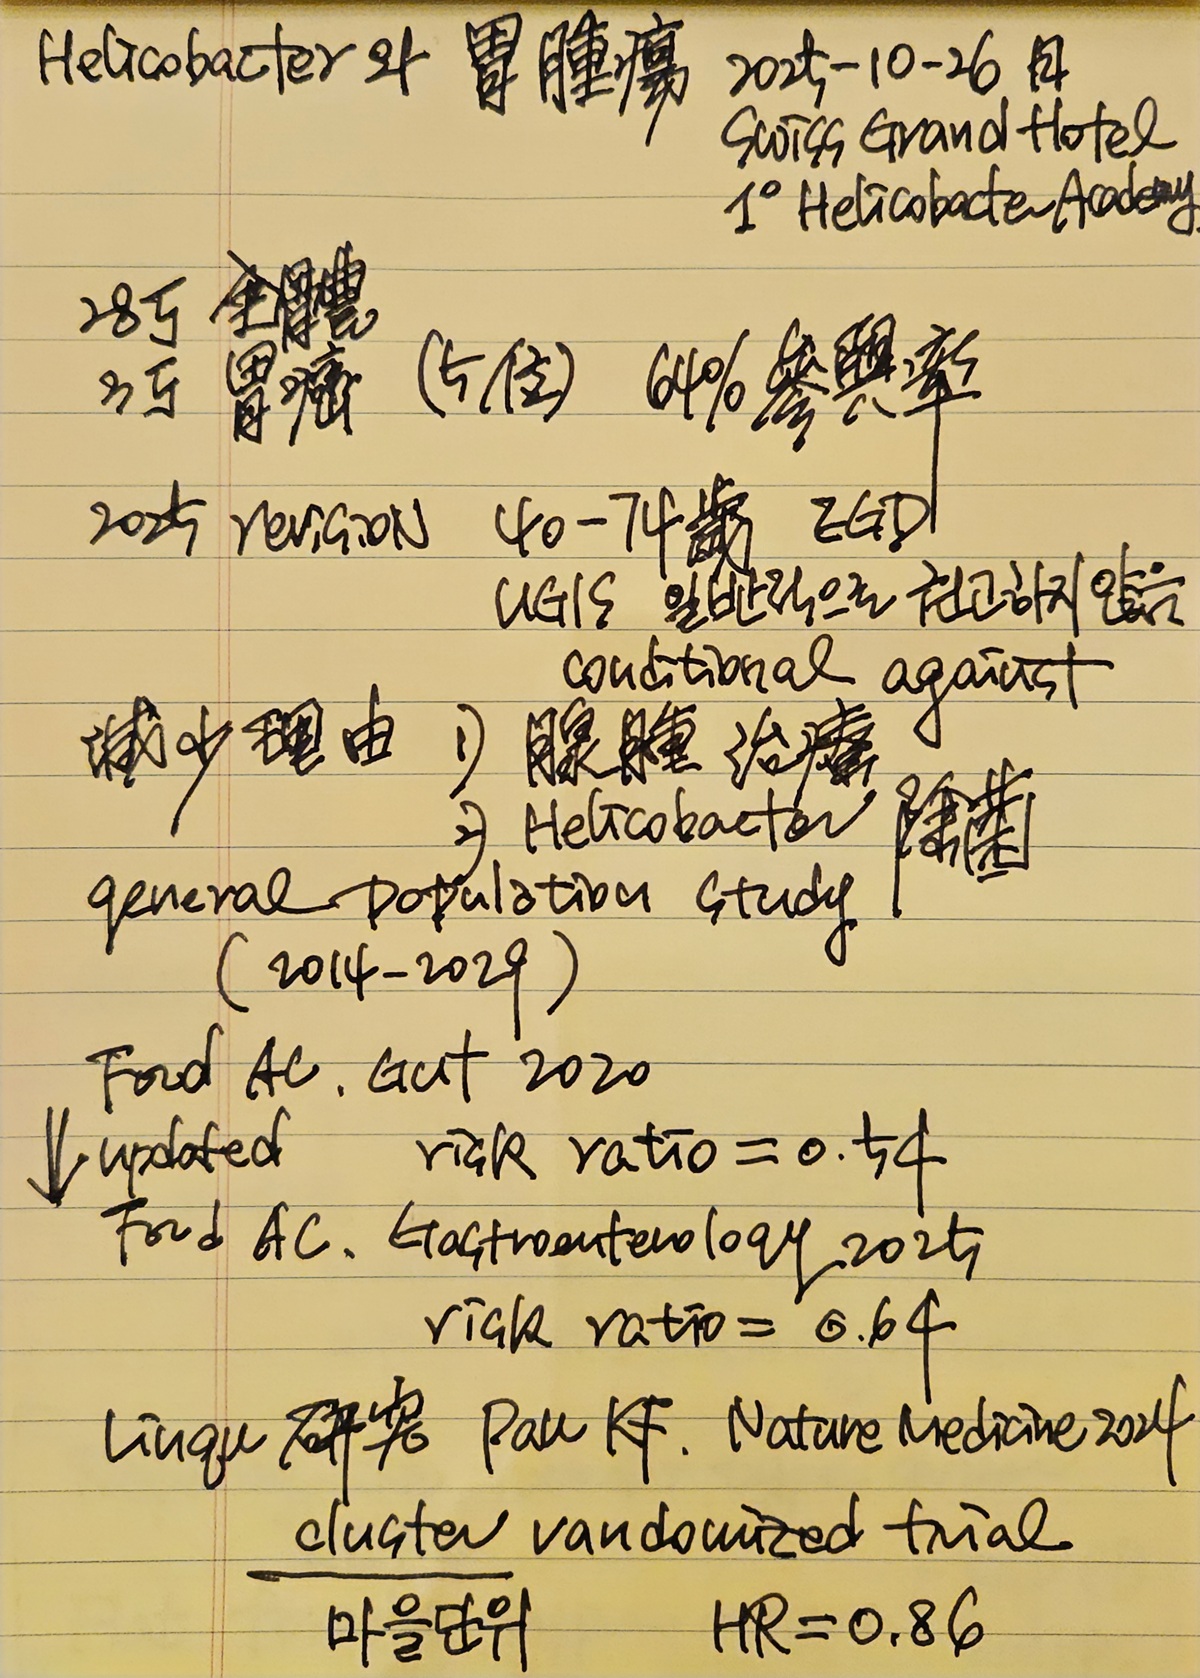 Helicobacter와 胃腫瘍 2025-10-26 日
Swiss Grand Hotel
1° Helicobacter Academy
28万 全體
3万 胃癌 (5位) 64% 參與率
2025 revision 40-74歲 EGD
UGIS 일반적으로 권고하지 않음
conditional against
減少理由 1) 腺腫治療
2) Helicobacter 除菌
general population study
(2014-2029)
Ford AC. Gut 2020
↓ updated risk ratio = 0.54
Ford AC. Gastroenterology 2025
risk ratio = 0.64
Linqu 研究 Pan KF. Nature Medicine 2024
cluster randomized trial
마을단위 HR = 0.86